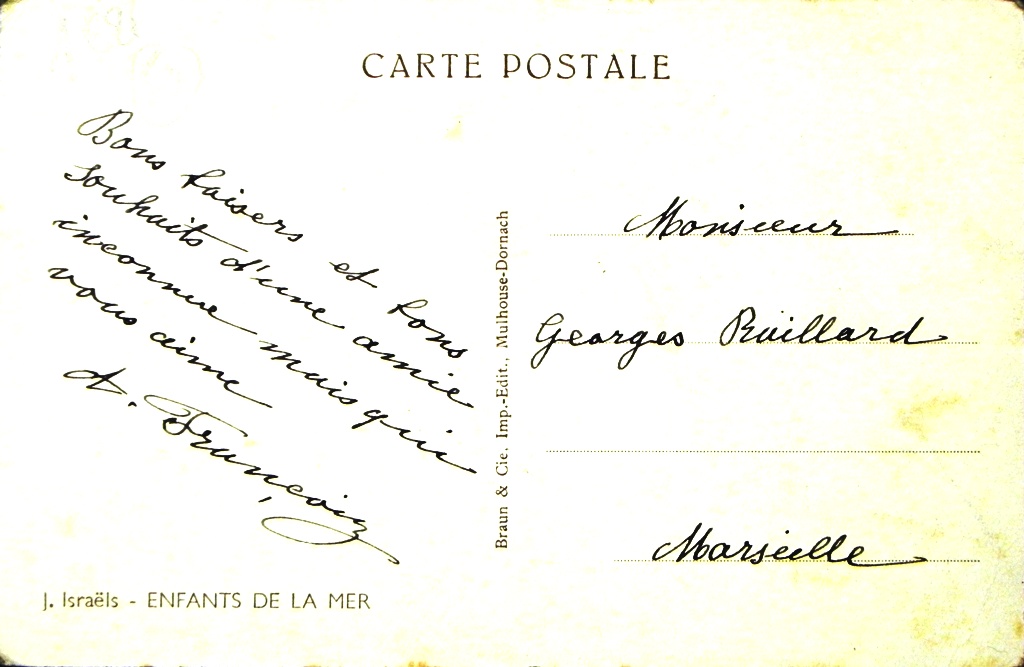 CARTE POSTALE
Bons baisers et bons
souhaits d'une amie
inconnue mais qui
vous aime
A. François
Braun & Cie, Imp.-Edit., Mulhouse-Dornach
Monsieur
Georges Ruillard
Marseille
J. Israëls - ENFANTS DE LA MER